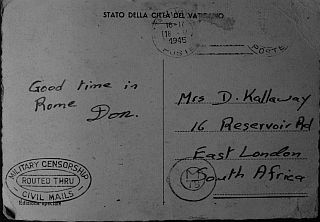 STATO DELLA CITTÀ DEL VATICANO
16-17
1945
POSTE
Good time in
Rome
Don.
Mrs D. Kallaway
16 Reservoir Rd
East London
South Africa
MILITARY CENSORSHIP
ROUTED THRU
CIVIL MAILS
Edizione speciale